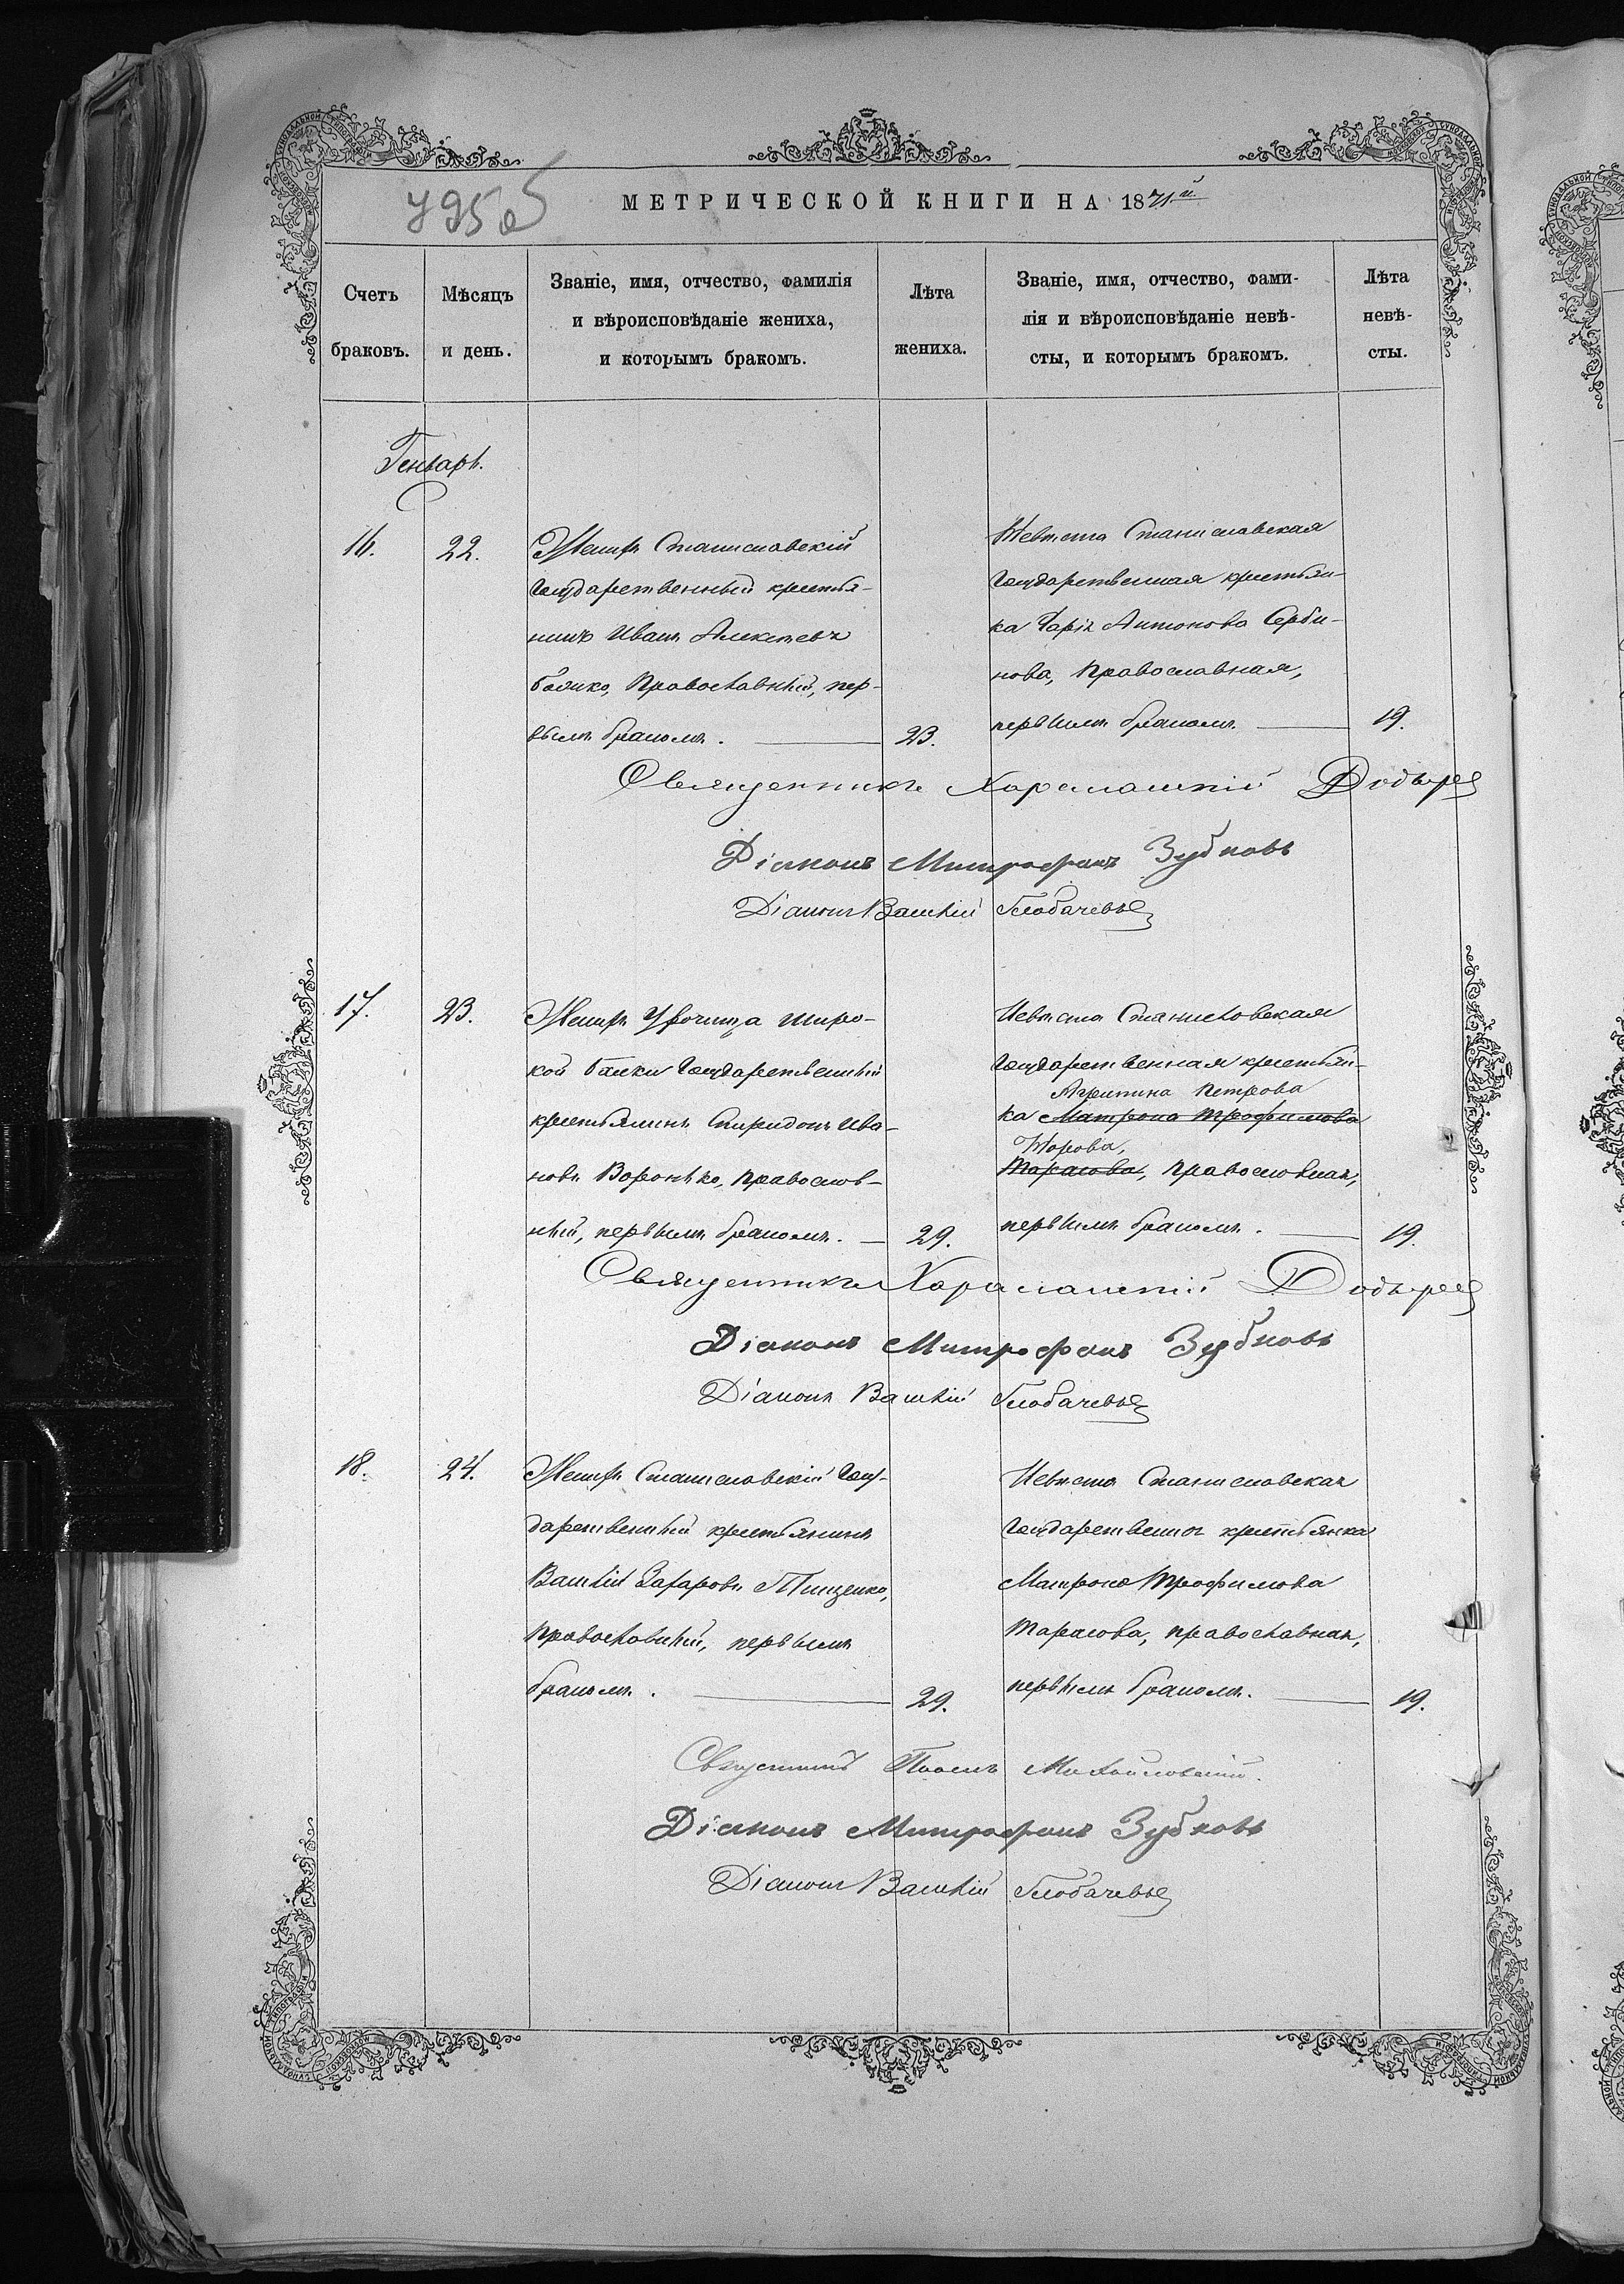 795 об
МЕТРИЧЕСКОЙ КНИГИ НА 1871й
Счетъ
браковъ.
Мѣсяцъ
и день.
Званіе, имя, отчество, фамилія
и вѣроисповѣданіе жениха,
и которымъ бракомъ.
Лѣта
жениха.
Званіе, имя, отчество, фами-
лія и вѣроисповѣданіе невѣ-
сты, и которымъ бракомъ.
Лѣта
невѣ-
сты.
Генварь.
16.
22.
Женихъ Станиславскій
Государственный крестья-
нинъ Иванъ Алексѣевъ
Бойко, Православный, пер-
вымъ бракомъ.
23.
Невѣста Станиславская
Государственная крестьян-
ка Дарія Антонова Серби-
нова, Православная,
первымъ бракомъ.
19.
Священникъ Харалампій
Діаконъ Митрофанъ Зубковъ
Діаконъ Василій Глобачевъ
17.
23.
Женихъ Урочища Широ-
кой Балки Государственный
крестьянинъ Спиридонъ Ива-
новъ Воронько, Православ-
ный, первымъ бракомъ.
29.
Невѣста Станиславская
Государственная крестьян-
Агрипина Петрова
ка Матрона Трофимова
Торова,
Тарасова, Православная,
первымъ бракомъ.
19.
Священникъ Харалампій
Діаконъ Митрофанъ Зубковъ
Діаконъ Василій Глобачевъ
18.
24.
Женихъ Станиславскій Госу-
дарственный крестьянинъ
Василій Захаровъ Тищенко,
Православный, первымъ
бракомъ.
29.
Невѣста Станиславская
Государственная крестьянка
Матрона Трофимова
Тарасова, Православная,
первымъ бракомъ.
19.
Священникъ Павелъ Михайловскій.
Діаконъ Митрофанъ Зубковъ
Діаконъ Василій Глобачевъ